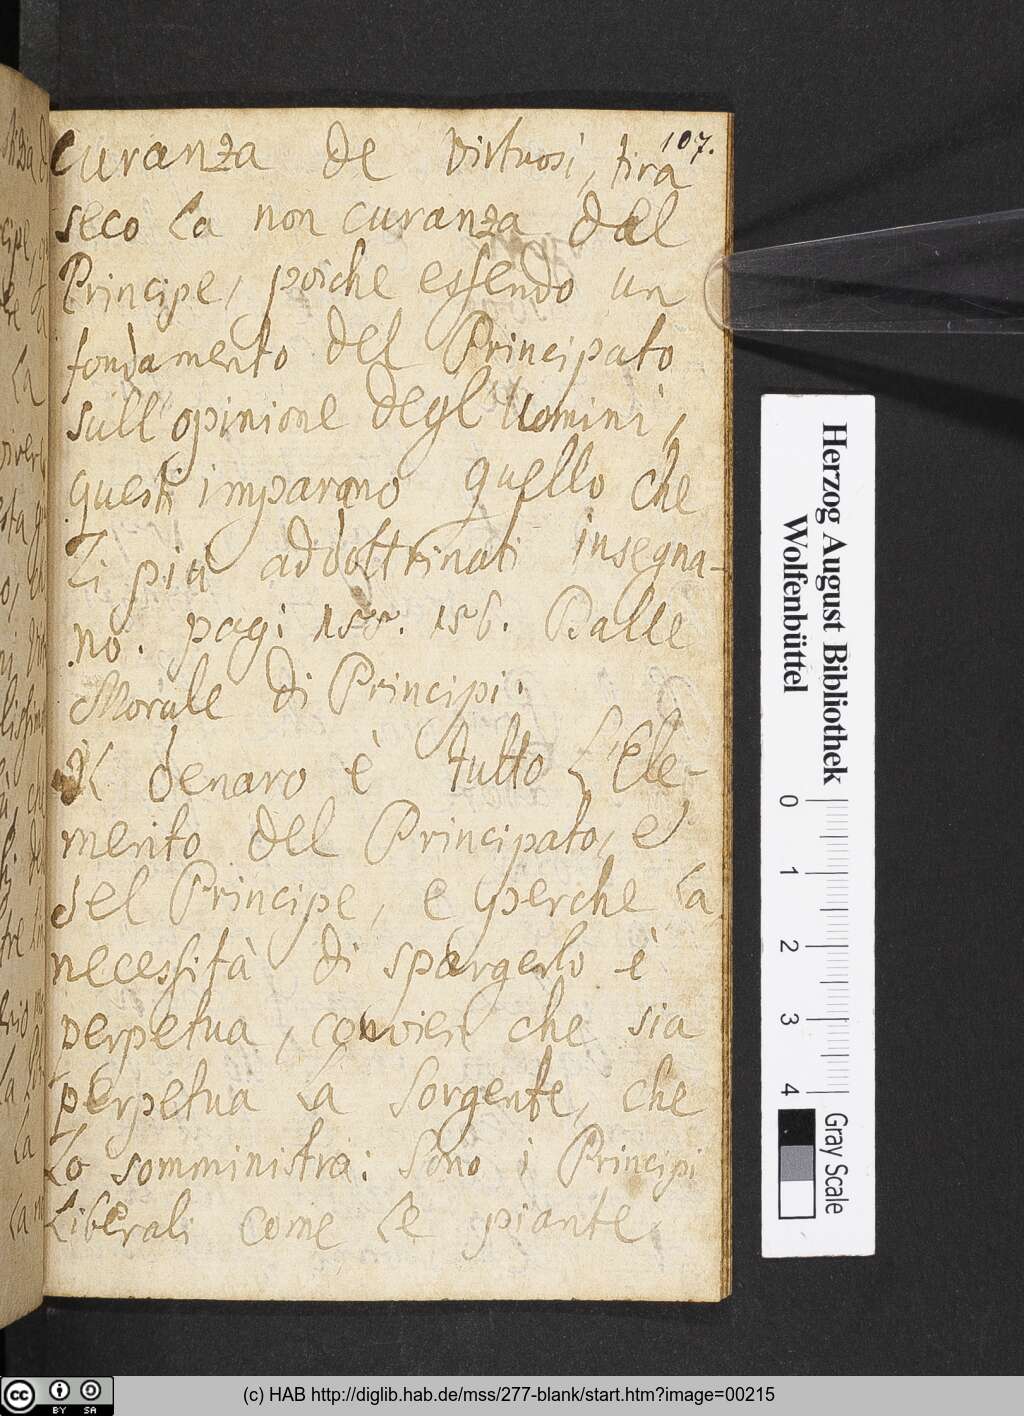 107.
curanza de virtuosi, tira
seco la non curanza del
Principe, poiche essendo un
fondamento del Principato
sull'opinione degl'Uomini,
questi imparano quello che
li più addottrinati insegna-
no. pag: 155. 156. Balle
Morale di Principi.
Il denaro è tutto l'Ele-
mento del Principato, e
del Principe, e perche la
necessità di spargerlo è
perpetua, convien che sia
perpetua la sorgente, che
lo somministra: sono i Principi
liberali come le piante
Herzog August Bibliothek
Wolfenbüttel
0 1 2 3 4
Gray Scale
cc BY SA
(c) HAB http://diglib.hab.de/mss/277-blank/start.htm?image=00215